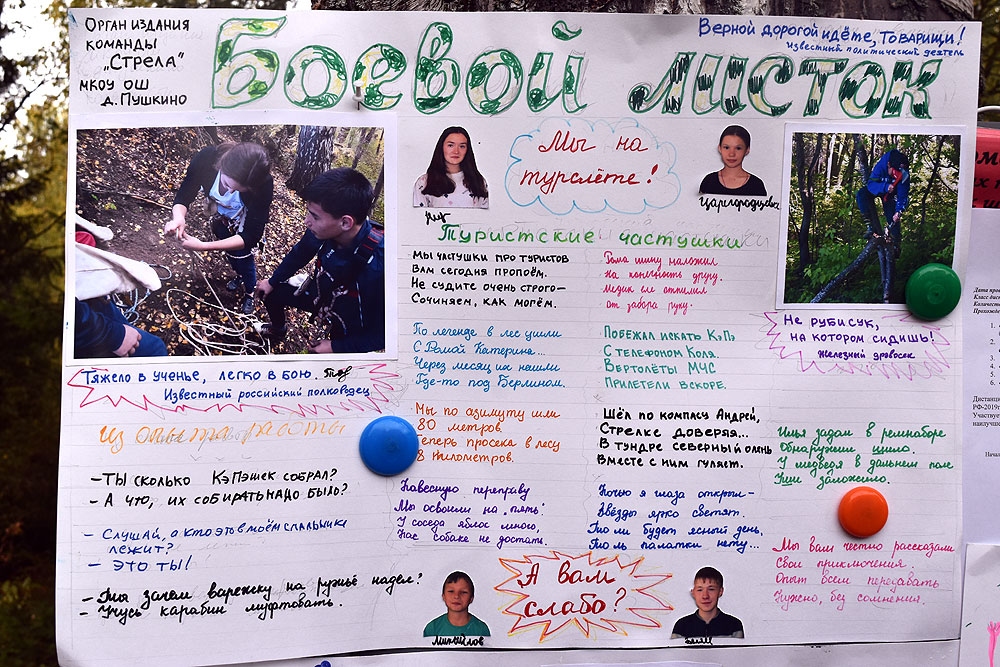 Орган издания
команды
„Стрела"
МКОУ ОШ
д. Пушкино
Боевой листок
Верной дорогой идёте, товарищи!
известный политический деятель
Мы на
турслёте!
Царегородцева
Туристские частушки
Мы частушки про туристов
Вам сегодня пропоём.
Не судите очень строго-
Сочиняем, как могём.
Рома шину наложил
На конечность другу.
Медик от
от забора руку.
По легенде в лес ушли
С Ромой Катерина...
Через месяц их нашли
Где-то под Берлином.
Побежал искать КэПэ
С телефоном Коля.
Вертолёты МЧС
Прилетели вскоре.
Мы по азимуту шли
80 метров.
Теперь просека в лесу
8 километров.
Шёл по компасу Андрей,
Стрелке доверяя...
В тундре северный олень
Вместе с ним гуляет.
Навесную переправу
Мы освоили на „пять".
У соседа яблок много,
Нас собаке не достать.
Ночью я глаза открыл-
Звёзды ярко светят.
То ли будет ясный день,
То ль палатки нету...
Илья задом в ремнаборе
Обнаружил шило.
У медведя в дальнем поле
Уши заложило.
Мы вам честно рассказали
Свои приключения.
Опыт всем передавать
Нужно, без сомнения.
Не руби сук,
на котором сидишь!
Железный дровосек
Тяжело в ученье, легко в бою.
Известный российский полководец
Из опыта работы
- Ты сколько КэПэшек собрал?
- А что, их собирать надо было?
- Слушай, а кто это в моём спальнике
лежит?
- Это ты!
- Ты зачем варежку на ружьё надел?
- Учусь карабин муфтовать.
А вам
слабо?
Михайлов
Дистанц
РФ-2019г
Участвуе
наилучше